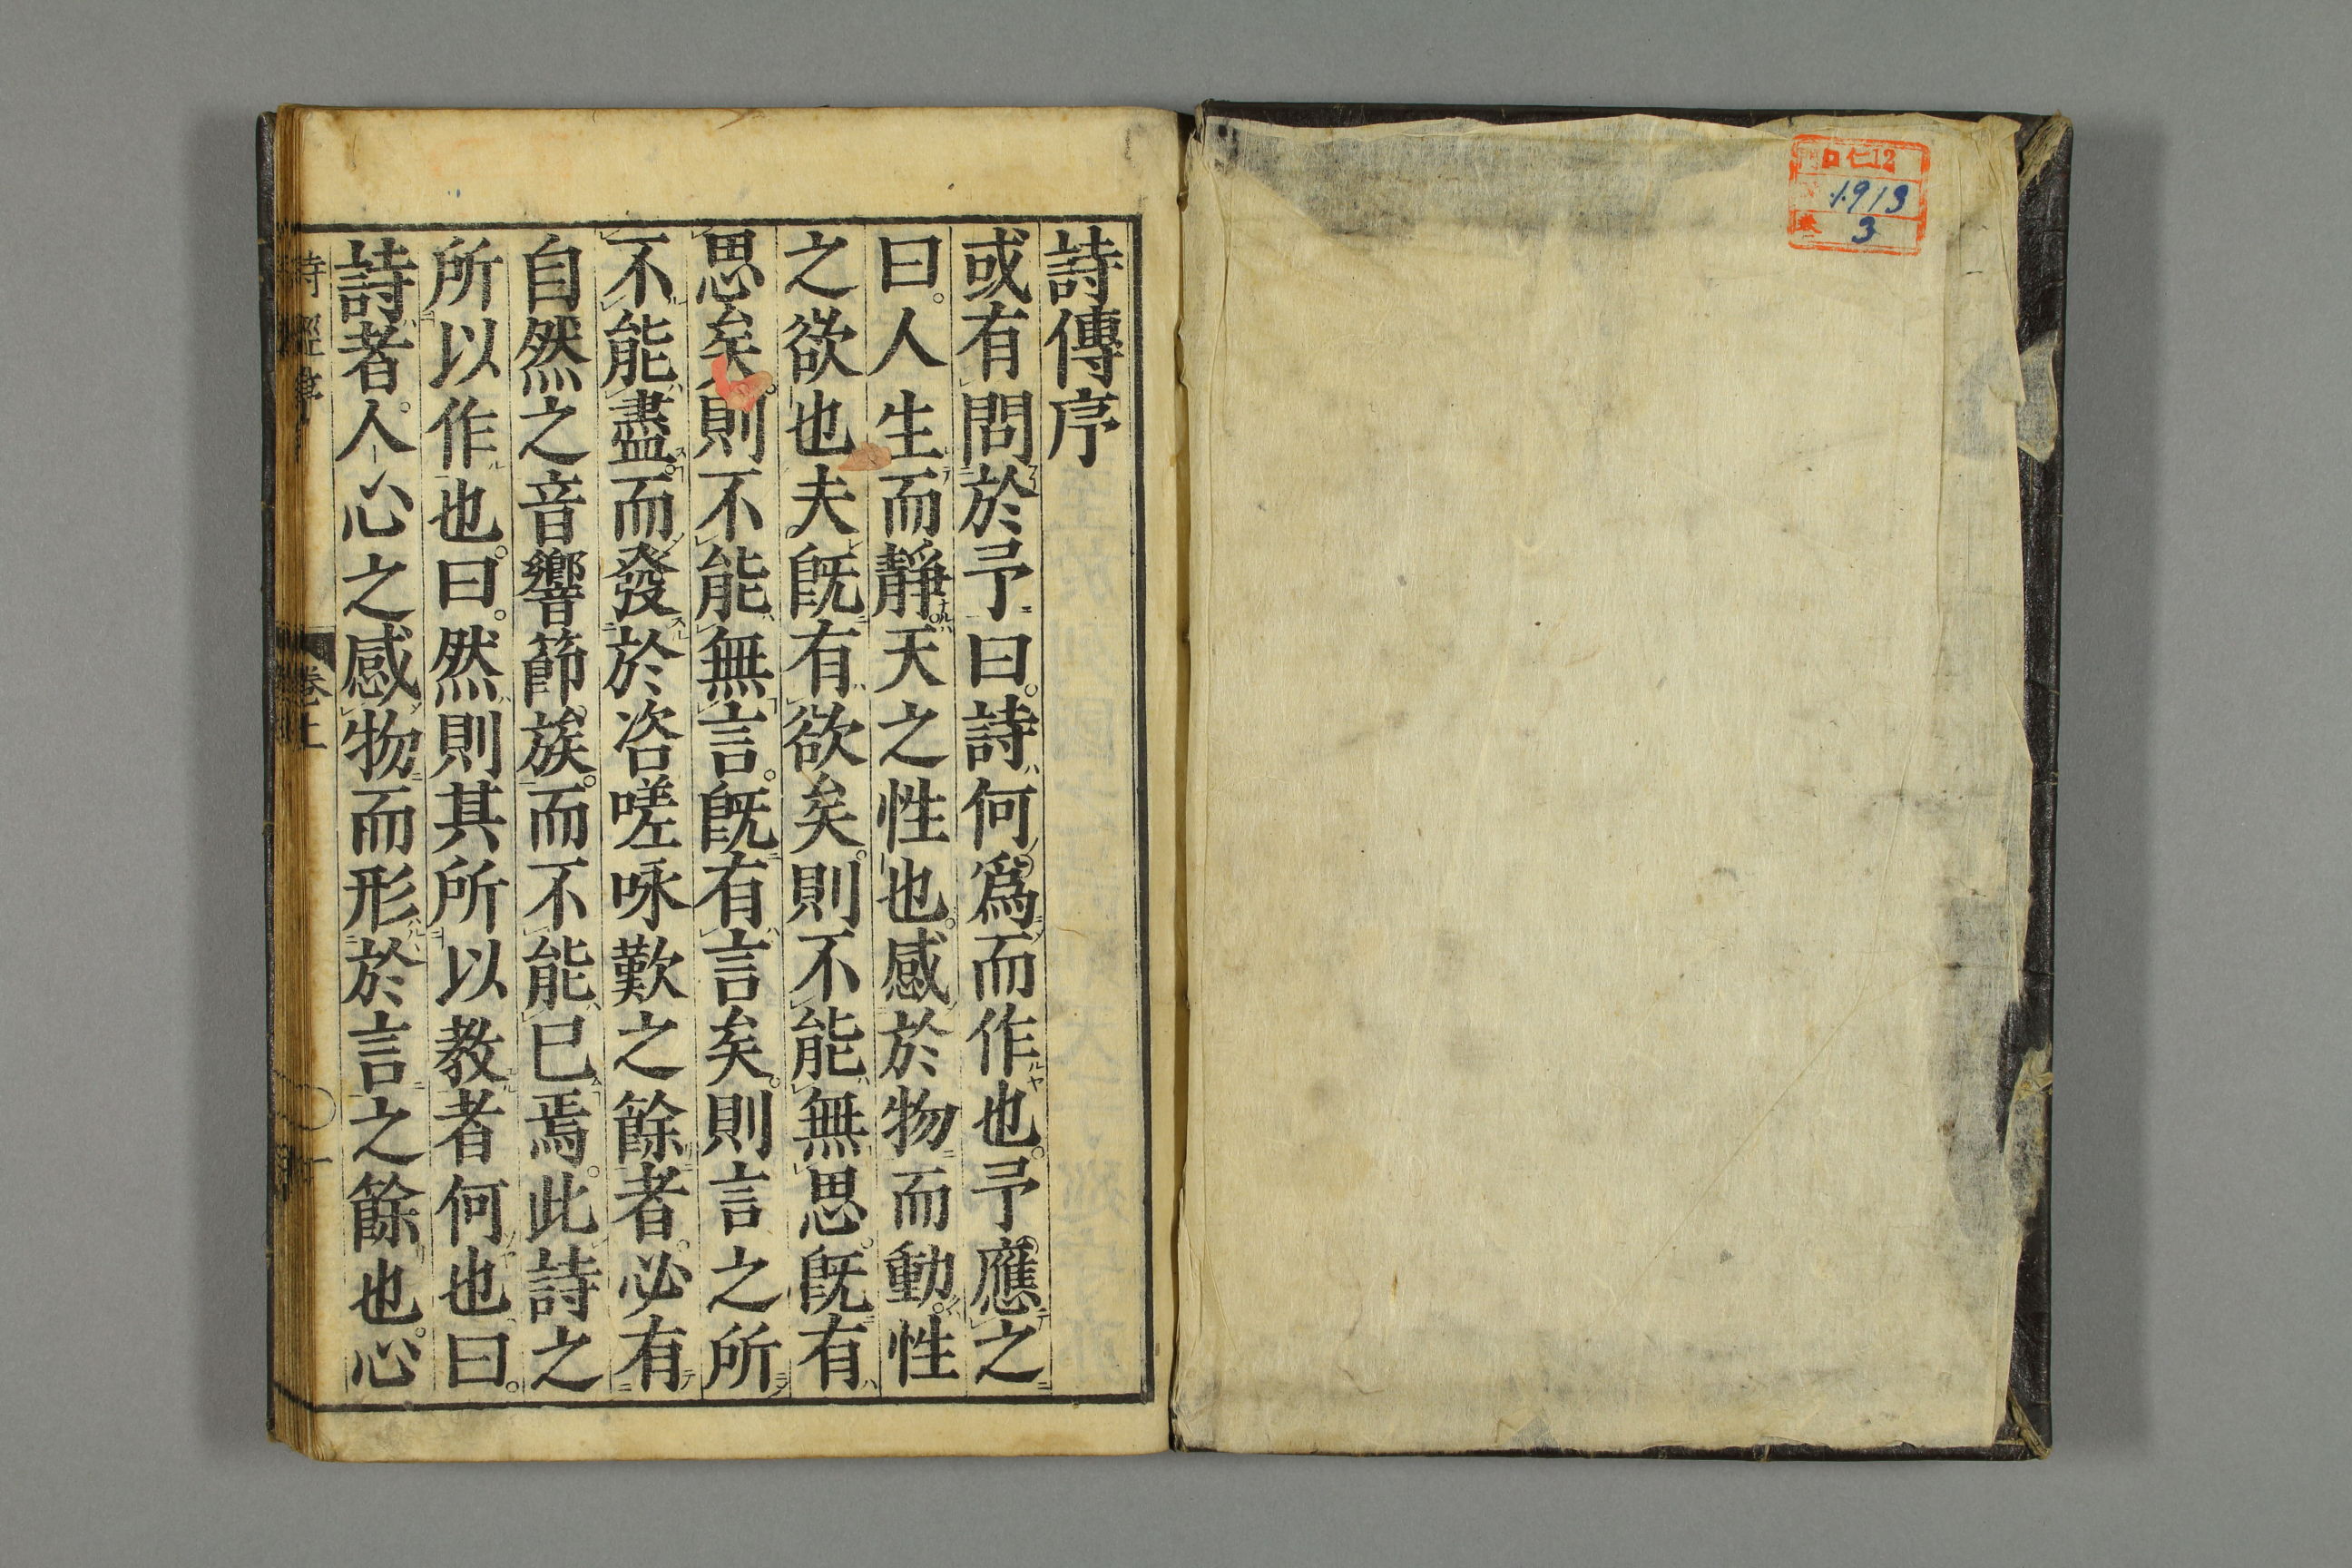 詩傳序
或有問於予曰。詩何爲而作也。予應之
曰。人生而靜。天之性也。感於物而動。性
之欲也。夫旣有欲矣。則不能無思。旣有
思矣。則不能無言。旣有言矣。則言之所
不能盡。而發於咨嗟咏歎之餘者。必有
自然之音響節族。而不能已焉。此詩之
所以作也。曰。然則其所以教者何也。曰。
詩者。人心之感物而形於言之餘也。心
詩經序 卷上 一
口仁12
1913
3